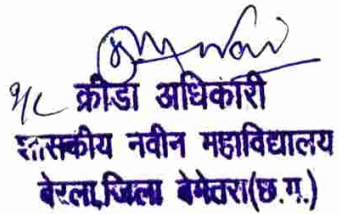 क्रीडा अधिकारी
शासकीय नवीन महाविद्यालय
बेरला,जिला बेमेतरा(छ.ग.)